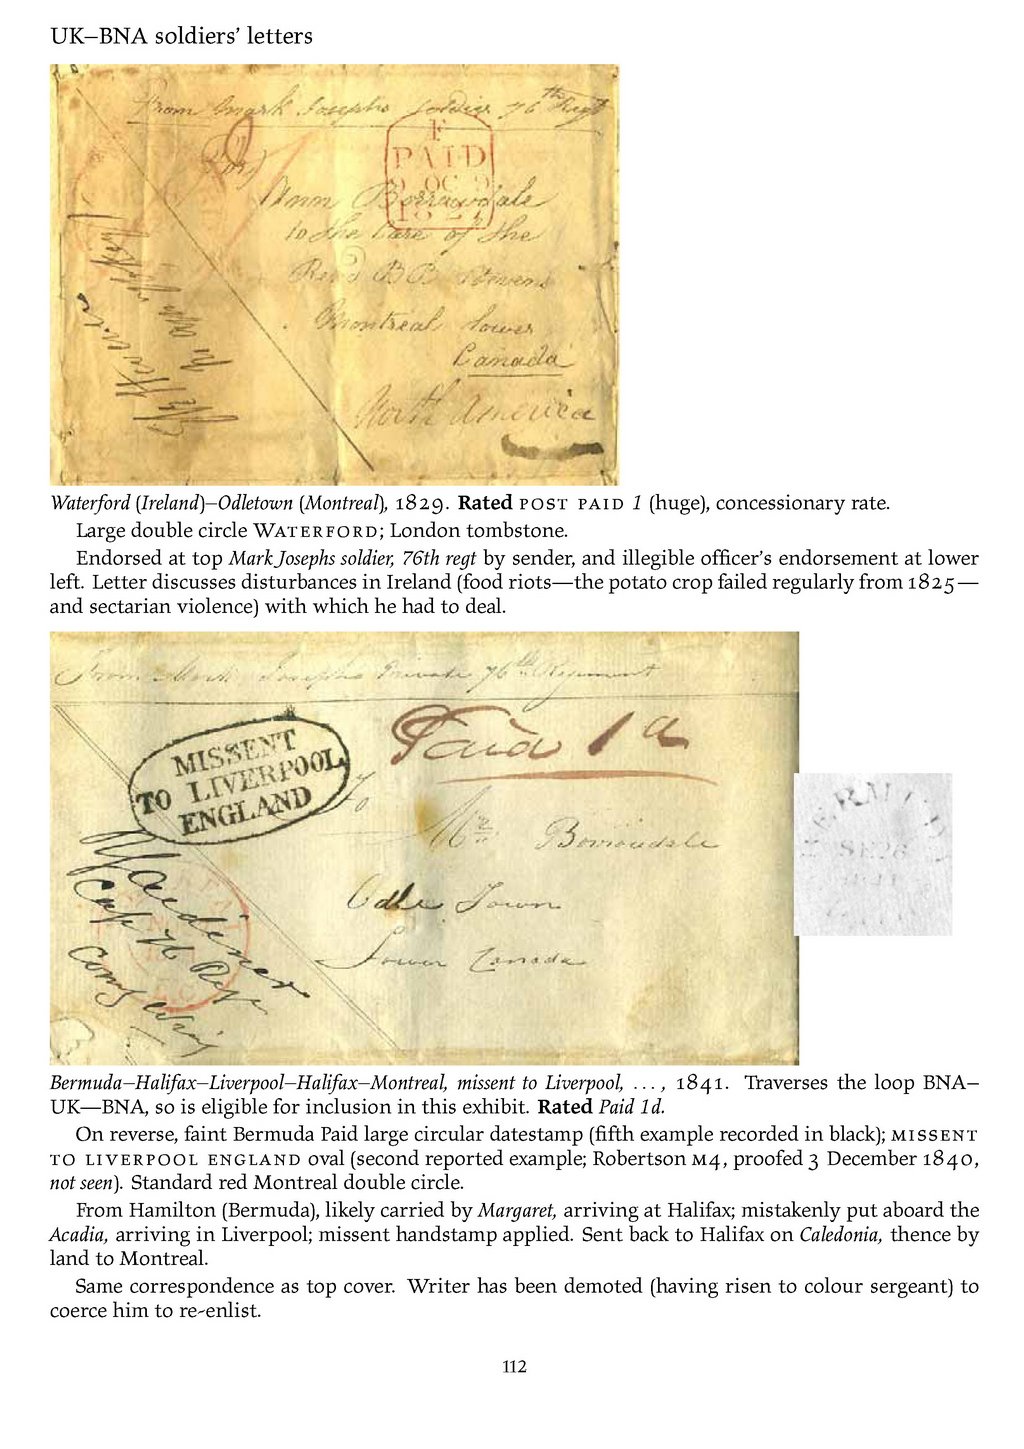 UK–BNA soldiers’ letters
From Mark Josephs soldier 76th Regt
F
PAID
9 OC 9
1829
(For)
Ann Borrowdale
to the Care of the
Revd B B Stevens
Montreal Lower
Canada
North America
Waterford (Ireland)–Odletown (Montreal), 1829. Rated POST PAID 1 (huge), concessionary rate.
Large double circle WATERFORD; London tombstone.
Endorsed at top Mark Josephs soldier, 76th regt by sender, and illegible officer’s endorsement at lower
left. Letter discusses disturbances in Ireland (food riots—the potato crop failed regularly from 1825—
and sectarian violence) with which he had to deal.
From Mark Josephs Private 76th Regiment
MISSENT
TO LIVERPOOL
ENGLAND
Paid 1d
To
Mr Borrowdale
Odle Town
Lower Canada
Gardiner
Capt 76 Regt
Comg
BERMUDA
SE 26
1841
Bermuda–Halifax–Liverpool–Halifax–Montreal, missent to Liverpool, ... , 1841. Traverses the loop BNA–
UK—BNA, so is eligible for inclusion in this exhibit. Rated Paid 1d.
On reverse, faint Bermuda Paid large circular datestamp (fifth example recorded in black); MISSENT
TO LIVERPOOL ENGLAND oval (second reported example; Robertson M4, proofed 3 December 1840,
not seen). Standard red Montreal double circle.
From Hamilton (Bermuda), likely carried by Margaret, arriving at Halifax; mistakenly put aboard the
Acadia, arriving in Liverpool; missent handstamp applied. Sent back to Halifax on Caledonia, thence by
land to Montreal.
Same correspondence as top cover. Writer has been demoted (having risen to colour sergeant) to
coerce him to re-enlist.
112